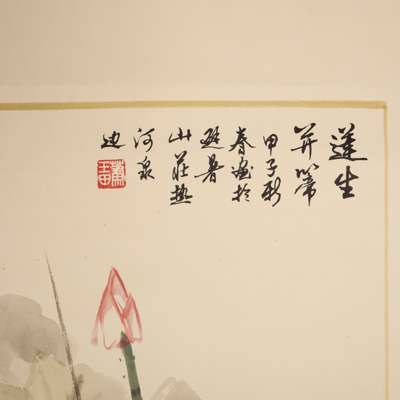 蓮生
并蒂
甲子新
春画於
避暑
山莊热
河泉
边